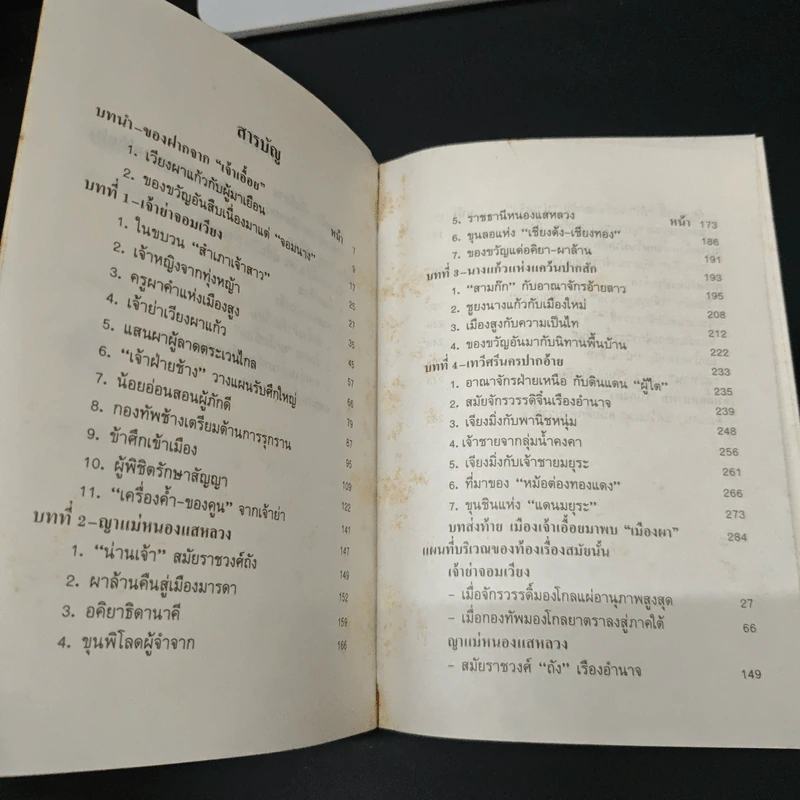 สารบัญ
หน้า
บทนำ-ของฝากจาก “เจ้าเอื้อย” 7
1. เวียงผาแก้วกับผู้มาเยือน 9
2. ของขวัญอันสืบเนื่องมาแต่ “จอมนาง” 11
บทที่ 1-เจ้าย่าจอมเวียง
1. ในขบวน “สำเภาเจ้าสาว”
2. เจ้าหญิงจากทุ่งหญ้า
3. ครูผาคำแห่งเมืองสูง
4. เจ้าย่าเวียงผาแก้ว
5. แสนผาผู้ลาดตระเวนไกล
6. “เจ้าฝ่ายช้าง” วางแผนรับศึกใหญ่
7. น้อยอ่อนสอนผู้ภักดี
8. กองทัพช้างเตรียมต้านการรุกราน
9. ข้าศึกเข้าเมือง
10. ผู้พิชิตรักษาสัญญา
11. “เครื่องค้ำ-ของคูน” จากเจ้าย่า
บทที่ 2-ญาแม่หนองแสหลวง
1. “น่านเจ้า” สมัยราชวงศ์ถัง
2. ผาล้านคืนสู่เมืองมารดา
3. อคิยาธิดานาคี
4. ขุนพิโลดผู้จำจาก 166
หน้า
5. ราชธานีหนองแสหลวง 173
6. ขุนลอแห่ง “เชียงดัง-เชียงทอง” 186
7. ของขวัญแด่อคิยา-ผาล้าน 191
บทที่ 3-นางแก้วแห่งแคว้นปากสัก 193
1. “สามก๊ก” กับอาณาจักรอ้ายลาว 195
2. ชูยงนางแก้วกับเมืองใหม่ 208
3. เมืองสูงกับความเป็นไท 212
4. ของขวัญอันมากับนิทานพื้นบ้าน 222
บทที่ 4-เทวีศรีนครปากอ้าย 233
1. อาณาจักรฝ่ายเหนือ กับดินแดน “ผู้ใด” 235
2. สมัยจักรวรรดิจิ๋นเรืองอำนาจ 239
3. เจียงมิ่งกับพานิชหนุ่ม 248
4. เจ้าชายจากลุ่มน้ำคงคา 256
5. เจียงมิ่งกับเจ้าชายมยุระ 261
6. ที่มาของ “หม้อต่องทองแดง” 266
7. ขุนชินแห่ง “แดนมยุระ” 273
บทส่งท้าย เมืองเจ้าเอื้อยมาพบ “เมืองผา” 284
แผนที่บริเวณของท้องเรื่องสมัยนั้น
เจ้าย่าจอมเวียง
- เมื่อจักรวรรดิ์มองโกลแผ่อานุภาพสูงสุด 27
- เมื่อกองทัพมองโกลยาตราลงสู่ภาคใต้ 66
ญาแม่หนองแสหลวง
- สมัยราชวงศ์ “ถัง” เรืองอำนาจ 149